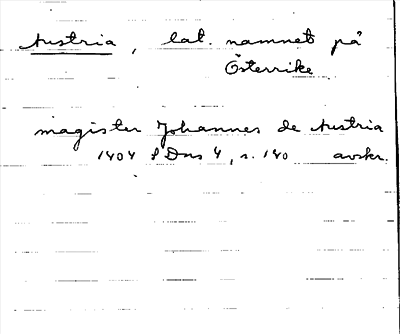 Austria, lat. namnet på
Österrike
magister Johannes de Austria
1404 SDns 4, s. 180 avskr.